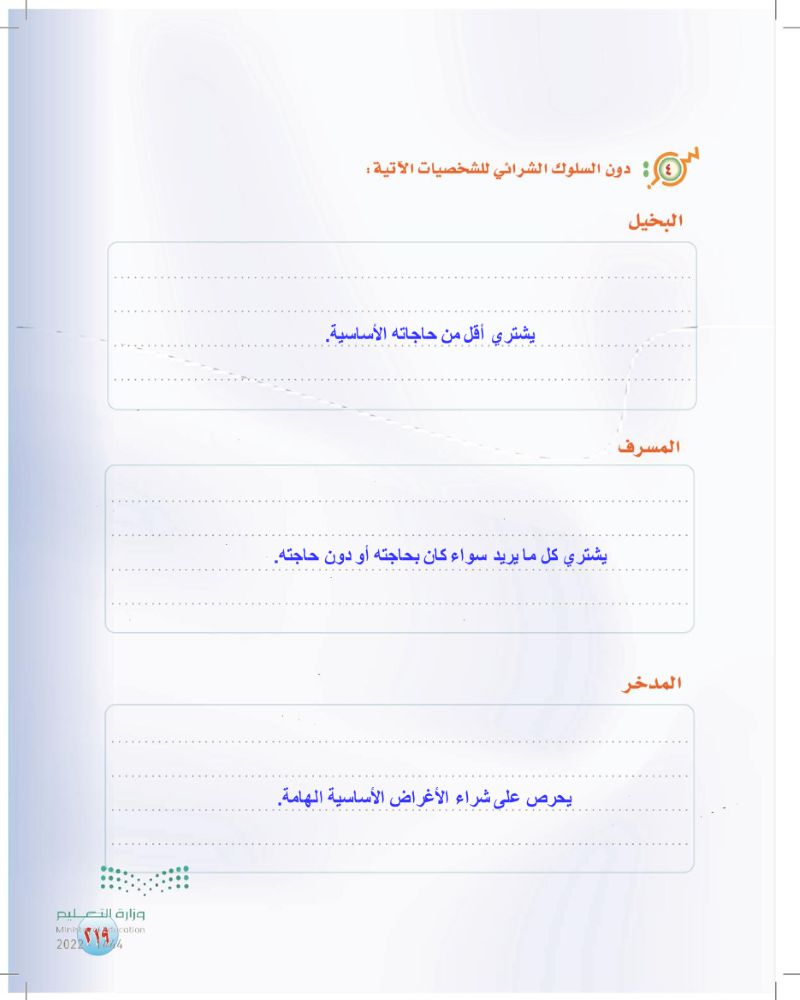 ٤ : دون السلوك الشرائي للشخصيات الآتية :
البخيل
يشتري أقل من حاجاته الأساسية.
المسرف
يشتري كل ما يريد سواء كان بحاجته أو دون حاجته.
المدخر
يحرص على شراء الأغراض الأساسية الهامة.
وزارة التعليم
Ministry of Education
٢١٩
2022 - 1444